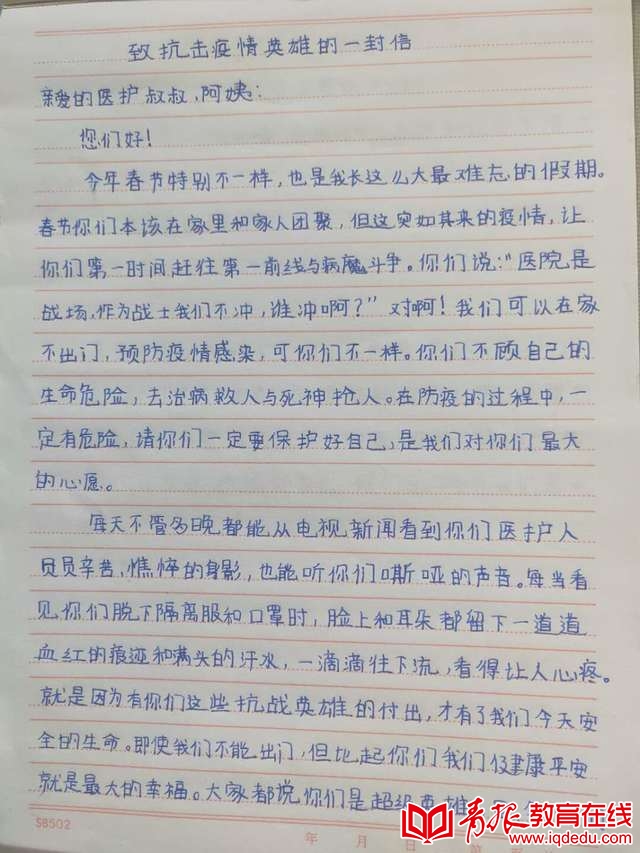 致抗击疫情英雄的一封信
亲爱的医护叔叔,阿姨:
您们好!
今年春节特别不一样,也是我长这么大最难忘的假期。
春节你们本该在家里和家人团聚,但这突如其来的疫情,让
你们第一时间赶往第一前线与病魔斗争。你们说:“医院是
战场,作为战士我们不冲,谁冲啊?”对啊!我们可以在家
不出门,预防疫情感染,可你们不一样。你们不顾自己的
生命危险,去治病救人与死神抢人。在防疫的过程中,一
定有危险,请你们一定要保护好自己,是我们对你们最大
的心愿。
每天不管多晚都能从电视新闻看到你们医护人
员员辛苦、憔悴的身影,也能听你们嘶哑的声音。每当看
见你们脱下隔离服和口罩时,脸上和耳朵都留下一道道
血红的痕迹和满头的汗水,一滴滴往下流,看得让人心疼。
就是因为有你们这些抗战英雄的付出,才有了我们今天安
全的生命。即使我们不能出门,但比起你们我们健康平安
就是最大的幸福。大家都说你们是超级英雄
S8502
年 月 日
青报教育在线
www.iqdedu.com